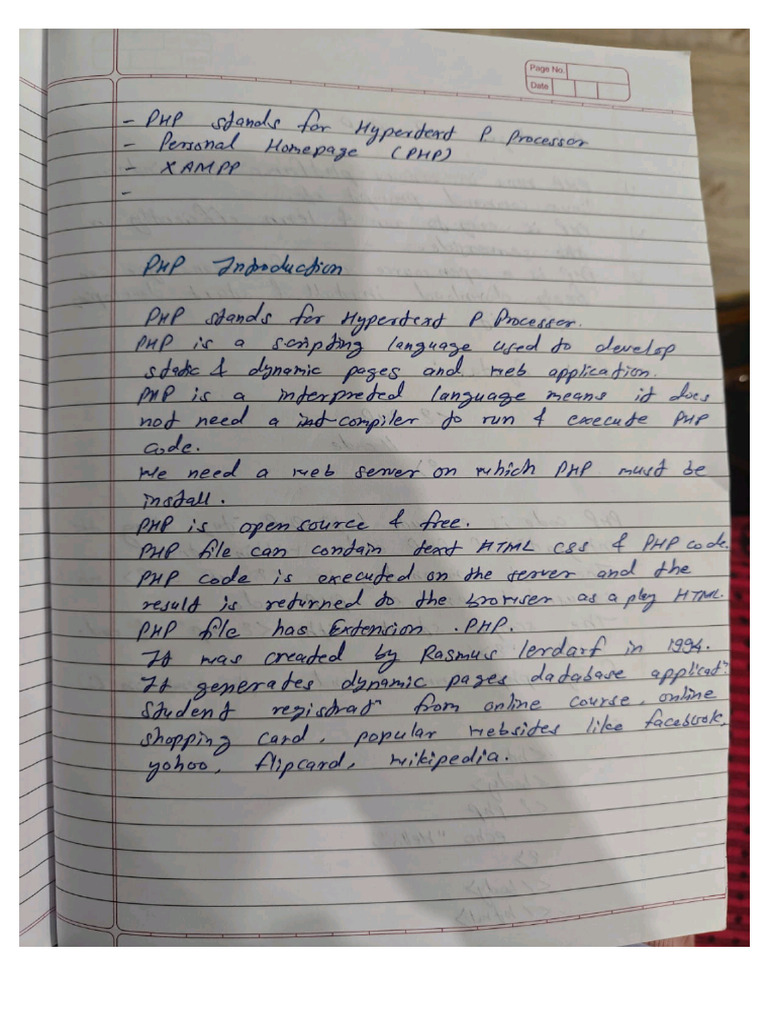 Page No.
Date
- PHP stands for Hypertext P Processor
- Personal Homepage (PHP)
- XAMPP
-
PHP Introduction
PHP stands for Hypertext P Processor.
PHP is a scripting language used to develop
static & dynamic pages and web application.
PHP is a interpreted language means it does
not need a int-compiler to run & execute PHP
code.
We need a web server on which PHP must be
install.
PHP is open source & free.
PHP file can contain text HTML CSS & PHP code.
PHP code is executed on the server and the
result is returned to the browser as a HTML.
PHP file has Extension .PHP.
It was created by Rasmus lerdarf in 1994.
It generates dynamic pages database applicatⁿ.
Student registratⁿ from online course, online
shopping card, popular websites like facebook,
yohoo, flipcard, wikipedia.